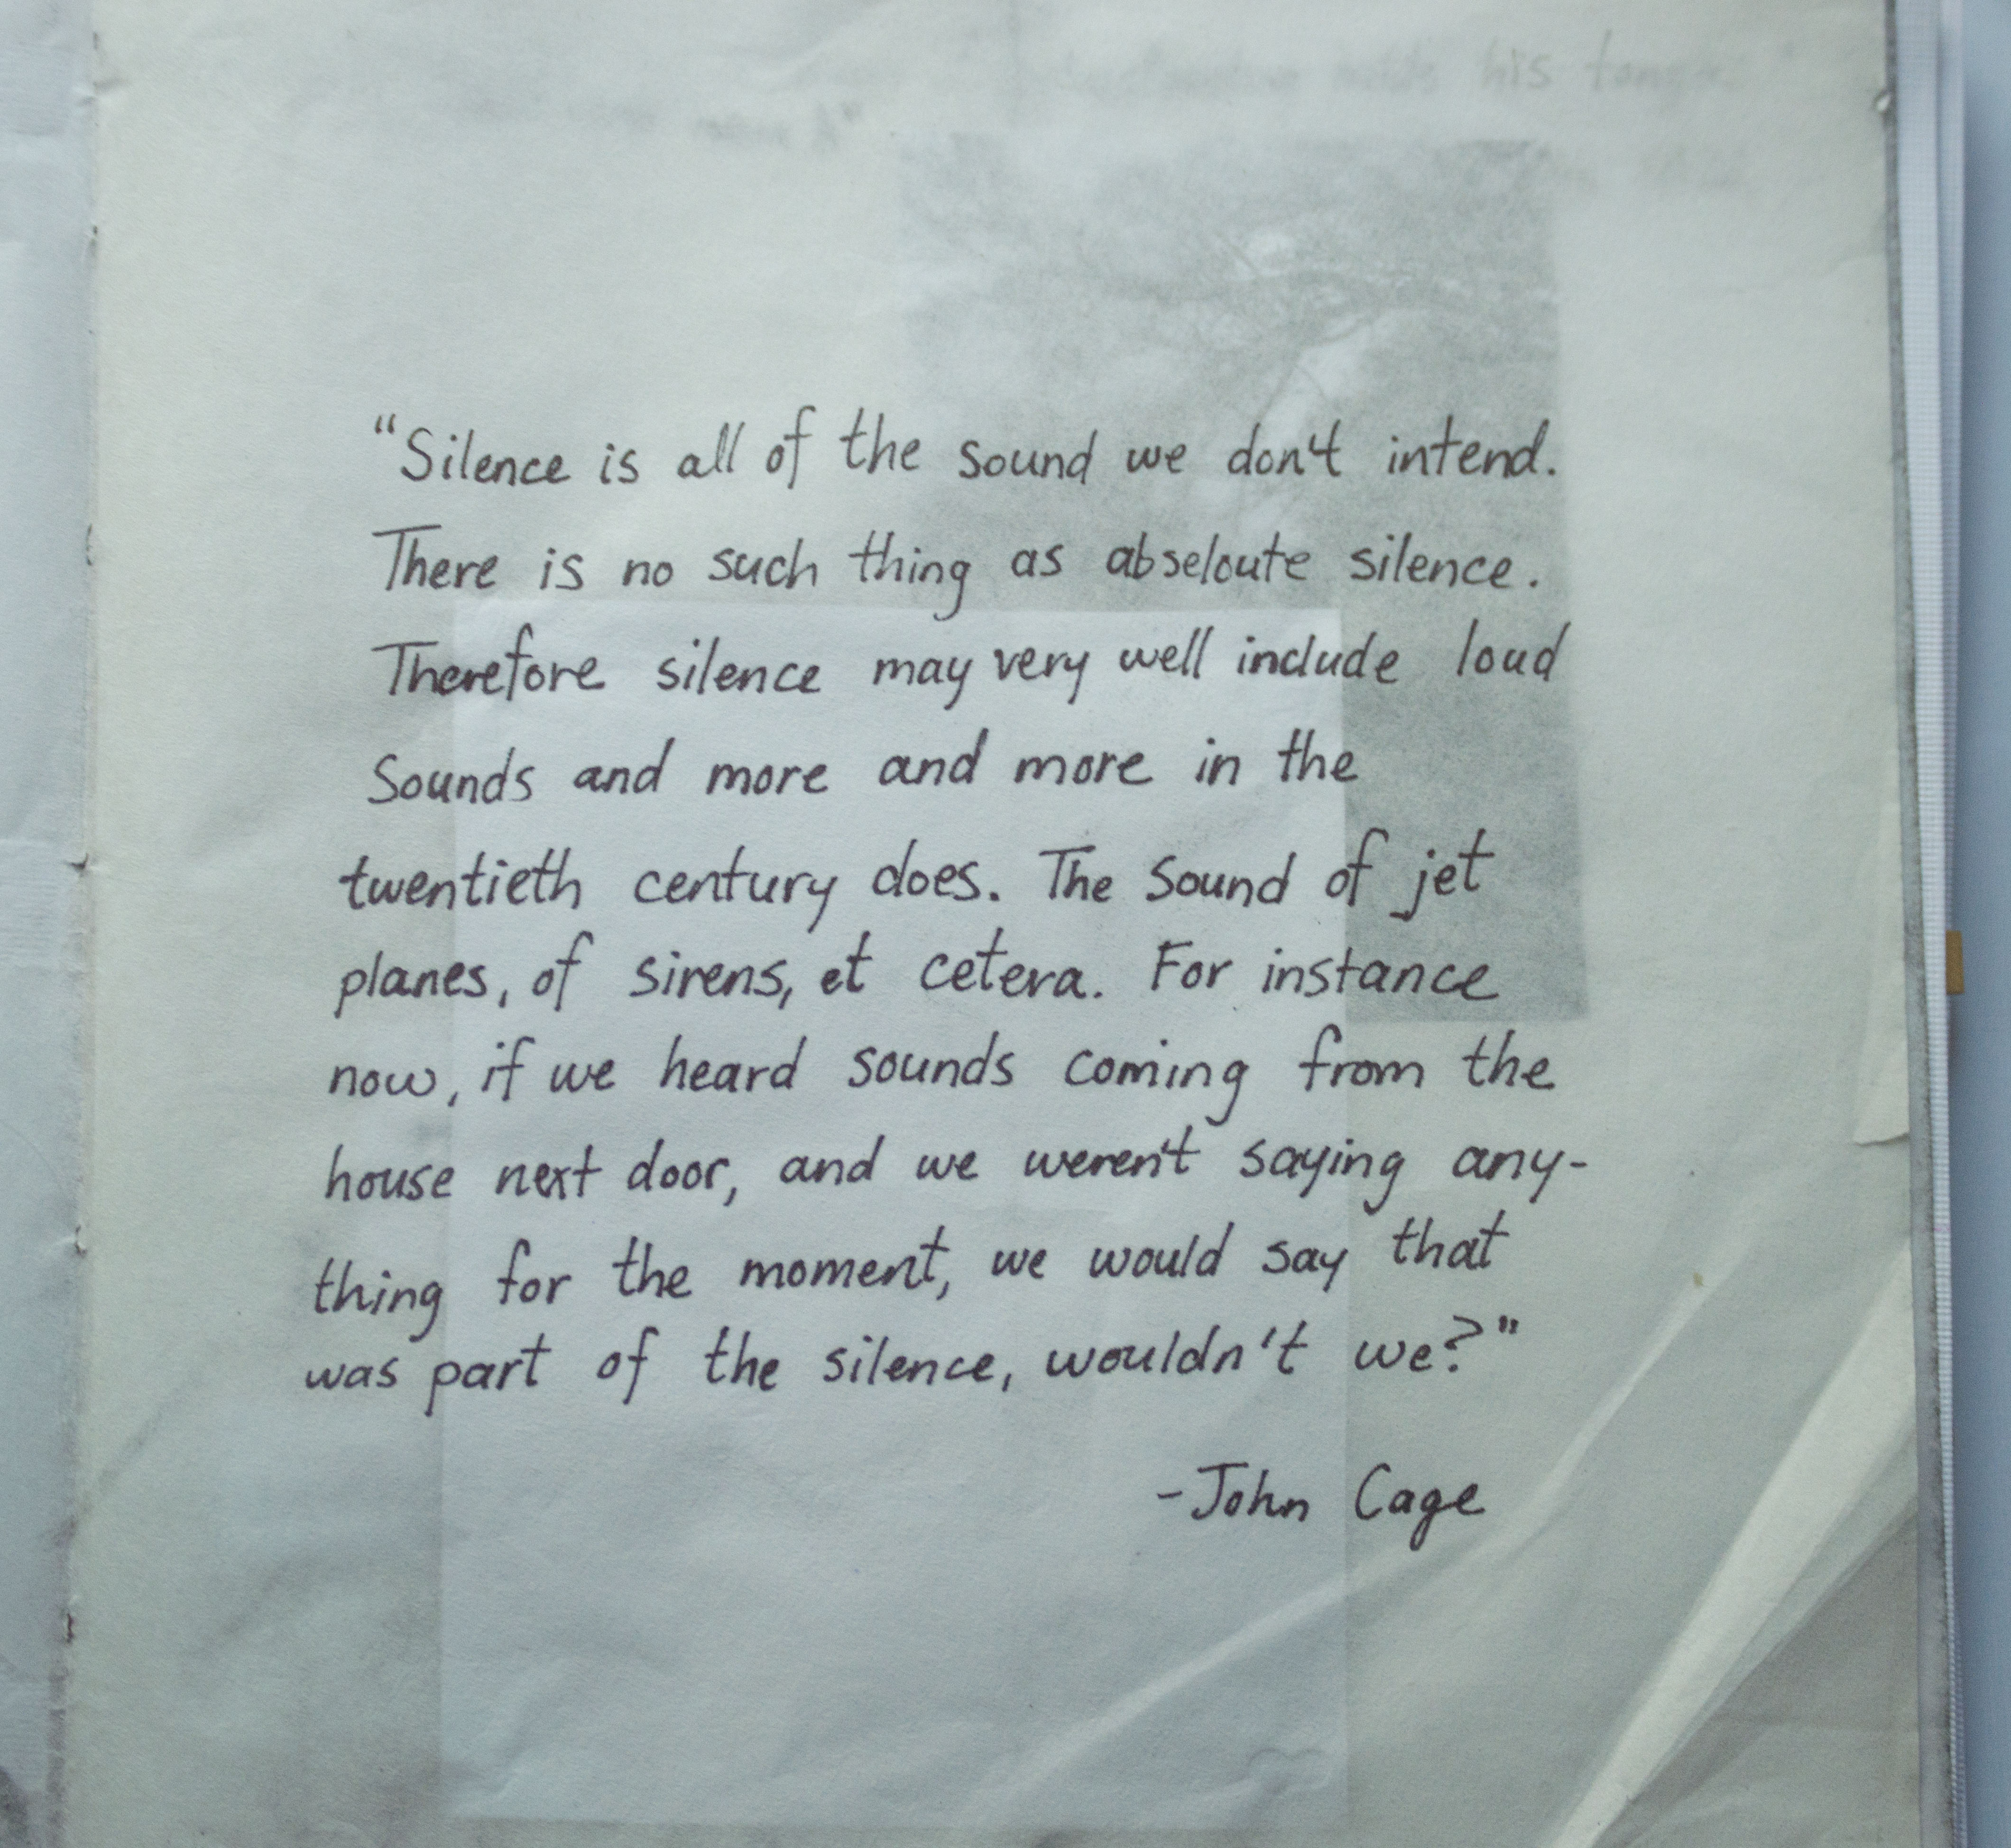 his
"Silence is all of the sound we don't intend.
There is no such thing as abseloute silence.
Therefore silence may very well include loud
Sounds and more and more in the
twentieth century does. The sound of jet
planes, of sirens, et cetera. For instance
now, if we heard sounds coming from the
house next door, and we weren't saying any-
thing for the moment, we would say that
was part of the silence, wouldn't we?"
-John Cage